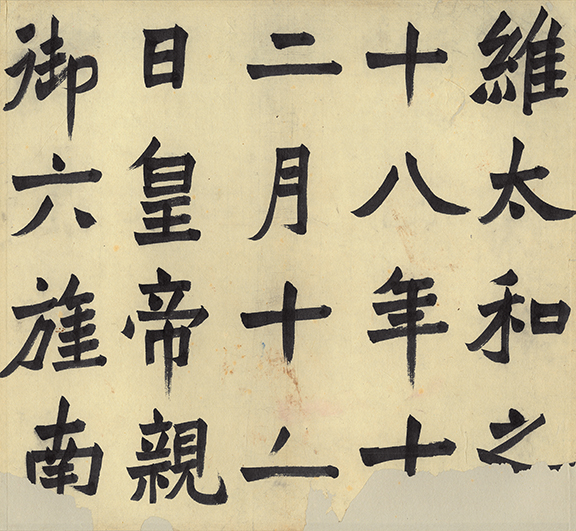 維太和之
十八年十
二月十
日皇帝親
御六旌南